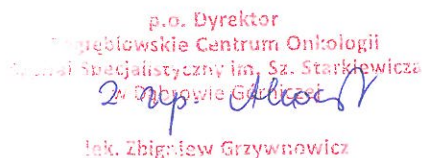 p.o. Dyrektor
Centrum Onkologii
Specjalistyczny im. Sz. Starkiewicza
w Dąbrowie Górniczej
lek. Zbigniew Grzywnowicz